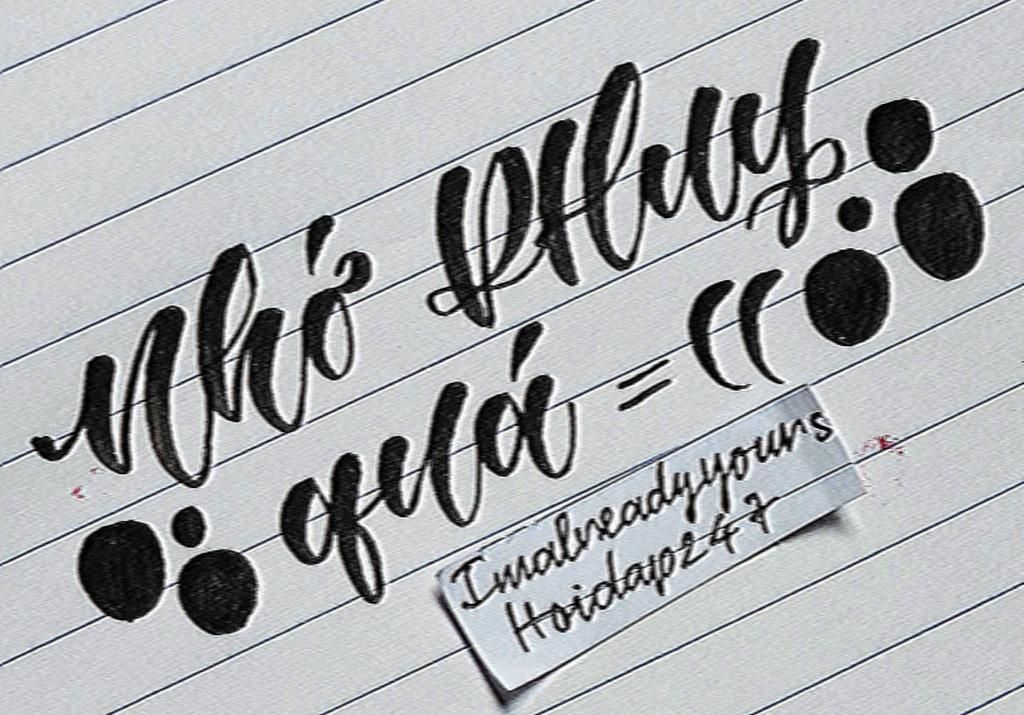 Nhớ Thuy
quá =((
Imalreadyyours
Hoidap247